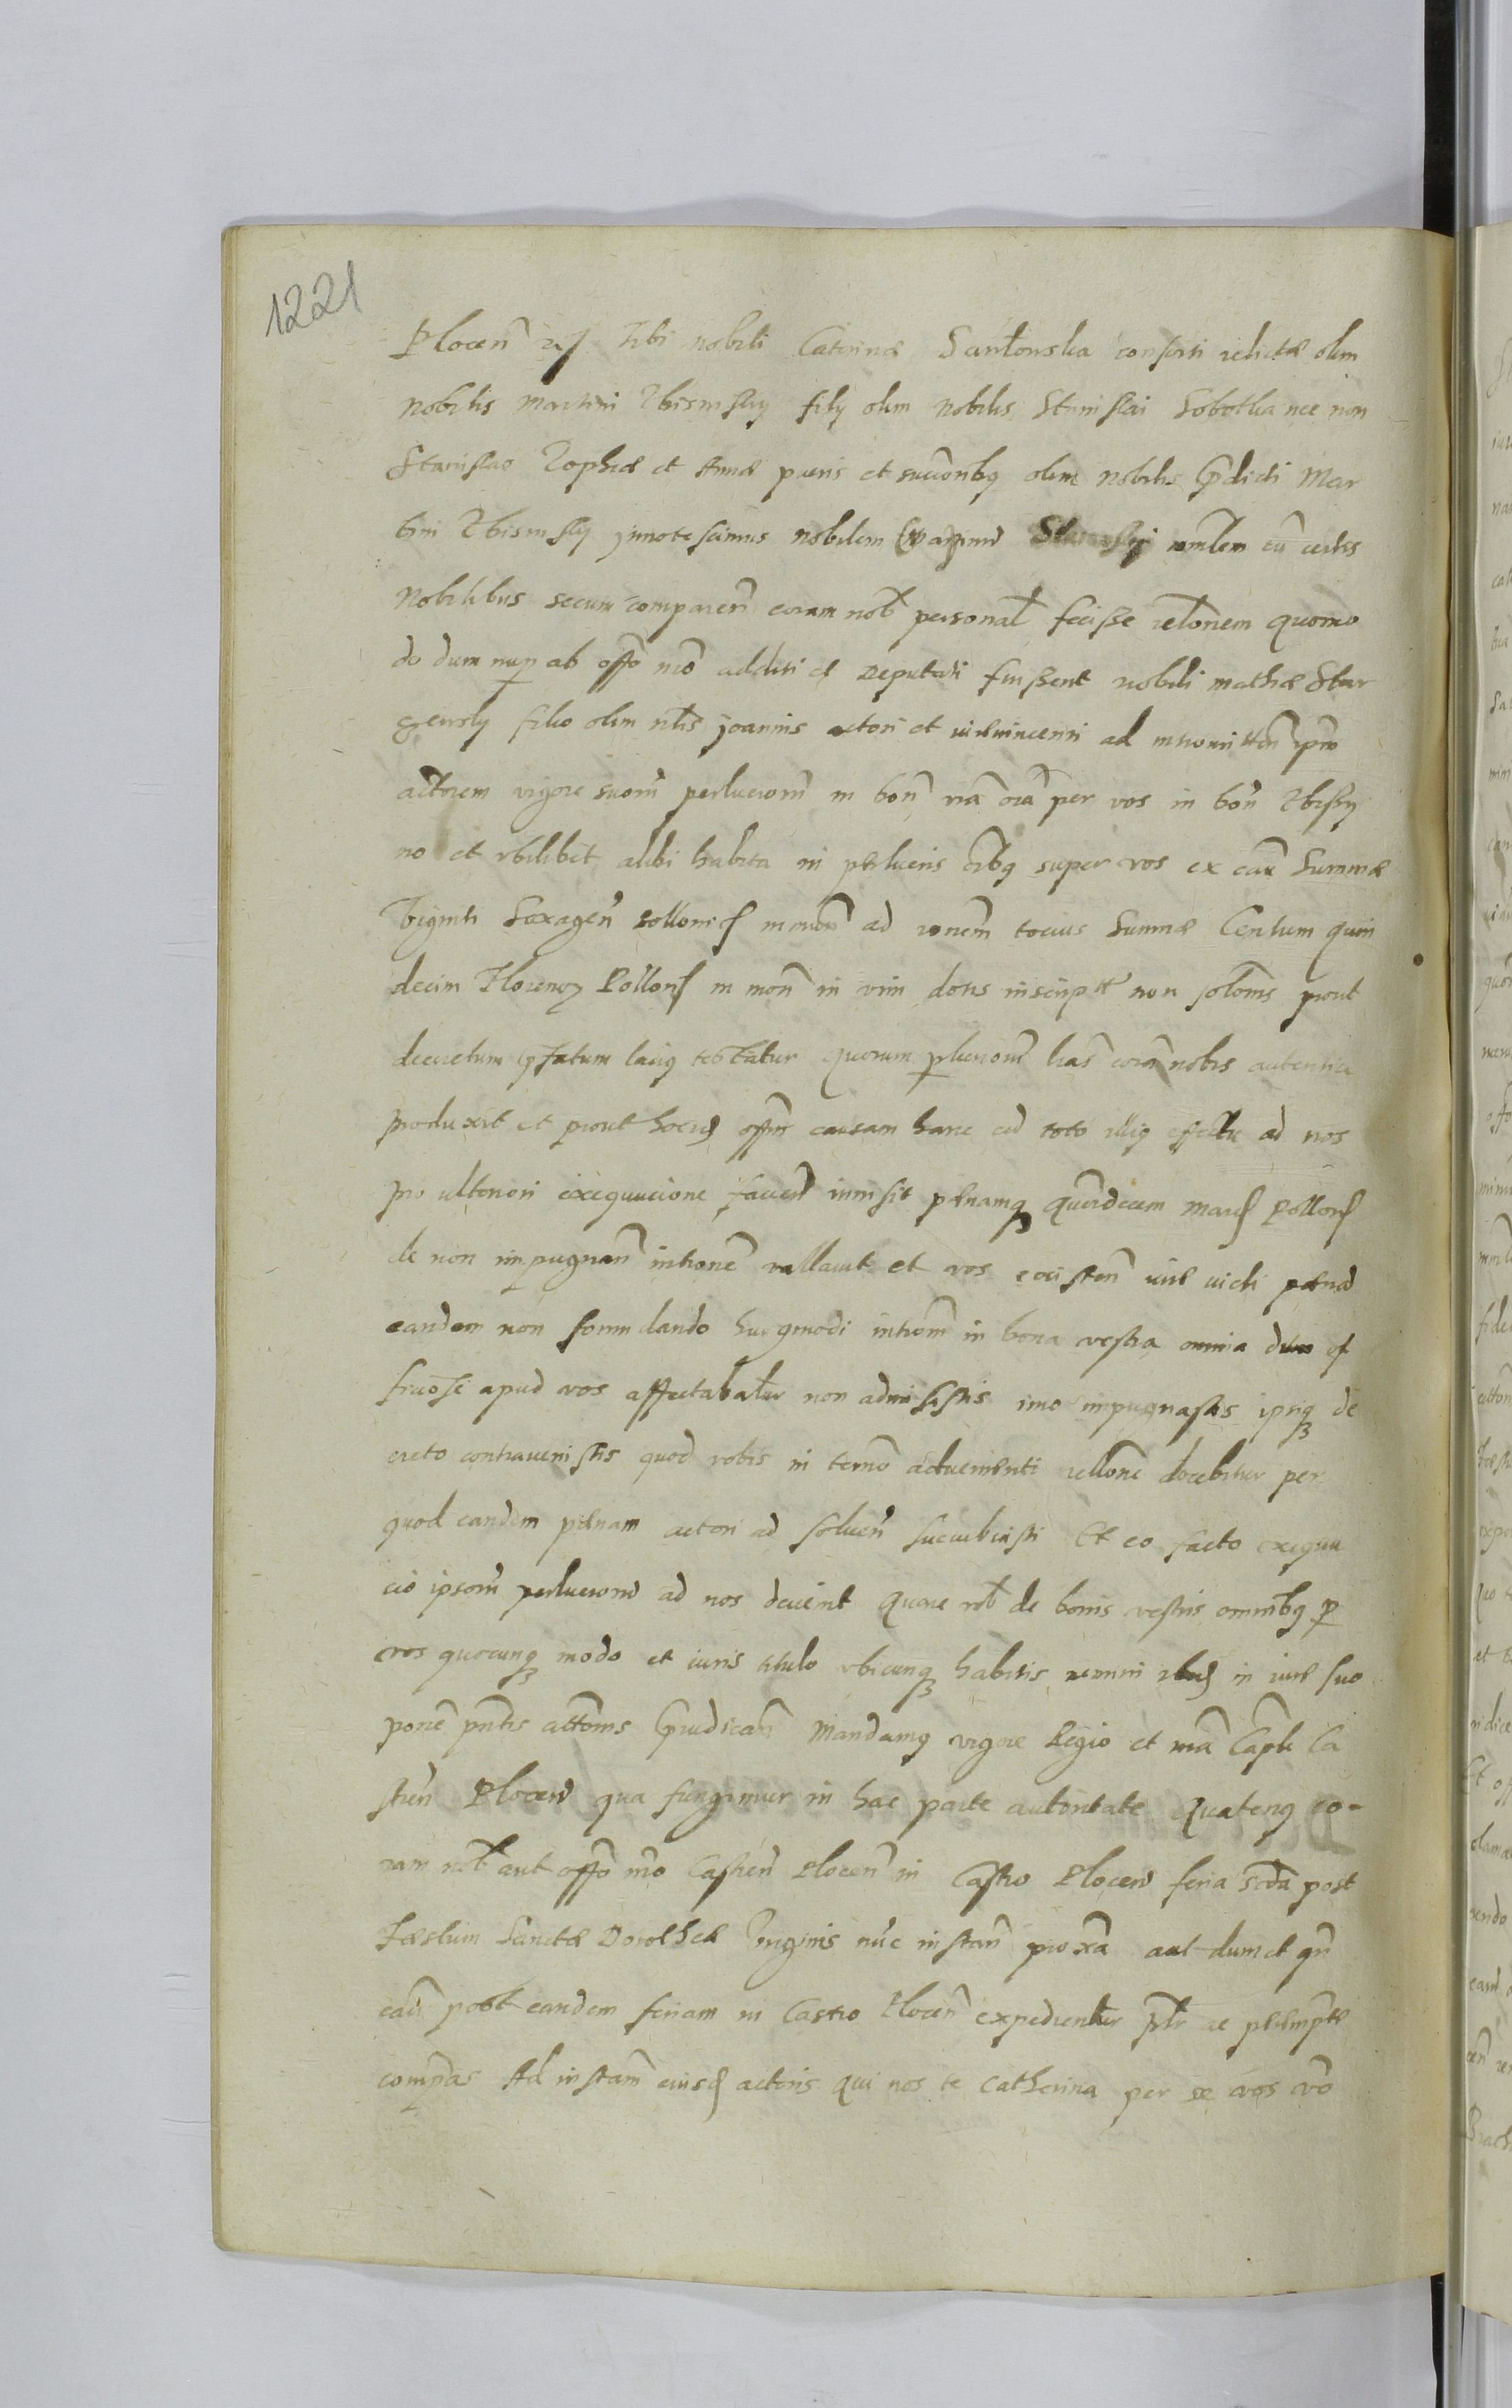 1221
Plocen̄ Tibi nobili Caterinæ consorti relictæ olim
Nobilis Martini Zbisinsky filÿ olim Nobilis Stanislai Sobotka nec non
Stanislao Zophiæ et Annæ pueris et succorībq̄ olim Nobilis p̄dicti Mar
tini Zbisinsky innotescimus Nobilem ministlem cū certis
Nobilibus secum comparen̄ coram nob̄ personal̄ fecisse relōnem quomo
do dum nup̄ ab offō nrō additi et deputati fuissent nobili Mathiæ Star
filio olim nlīs Joannis actori et iurevincenti ad intromitten̄ ipm̄
actorem vigore suorū perlucrorū in bon̄ oīa per vos in bon̄ Zbisÿ
no et vbilibet alibi habita in perlucris oībq̄ super vos ex Summæ
Viginti Sexagen̄ pollonic̄ in mon̄ ad ronem̄ tocius Summæ Centum quin
decim Florenoꝝ Pollonꝭ in mon̄ in vim dotis inscript̄ non solōnis prout
decretum p̄fatum laciq̄ testatur quorum perlucrorū lrās corā nobis autentice
produxit et prout offm̄ causam hanc cū toto illiq̄ effectu ad nos
pro ulteriori exequucione facien̄ inmisit pænamq̄ quordecem marcꝭ Pollonꝭ
de non impugnan̄ intronē vallavit et vos existen̄ iure victi pænā
eandem non formidando huiqmodi introm̄ in bona vestra omnia dum of
ficiose apud vos affectabatur non admisistis imo impugnastis ipsiq̄ de
creto contravenistis quod vobis in termō adveniēnti rellōne docebitur per
quod eandem pænam actori ad solven̄ succubuisti Et eo facto exequu
cio ipsorū perlucrorū ad nos devenit Quare vob̄ de bonis vestris omnībq̄ p̄
vos quocunq̄ modo et iuris titulo vbicunq̄ habitis nemini in iure suo
ponē pn̄tis attōnis p̄iudican̄ Mandamq̄ vigore Regio et Ca
stren̄ Plocen̄ qua fungimur in hac parte autoritate Quatenq̄ co-
ram nob̄ aut offō nrō Castren̄ Plocen̄ in Castro Plocen̄ feria scd̄a post
Festum Sanctæ Dorotheæ Virginis nūc instan̄ proxā aut dum et qn̄
caū post eandem feriam in Castro Plocen̄ expedientur p̄lr̄ ac peremptē
comp̄as Ad instan̄ eiusꝭ actoris qui vos te Catherina per se vos vrō